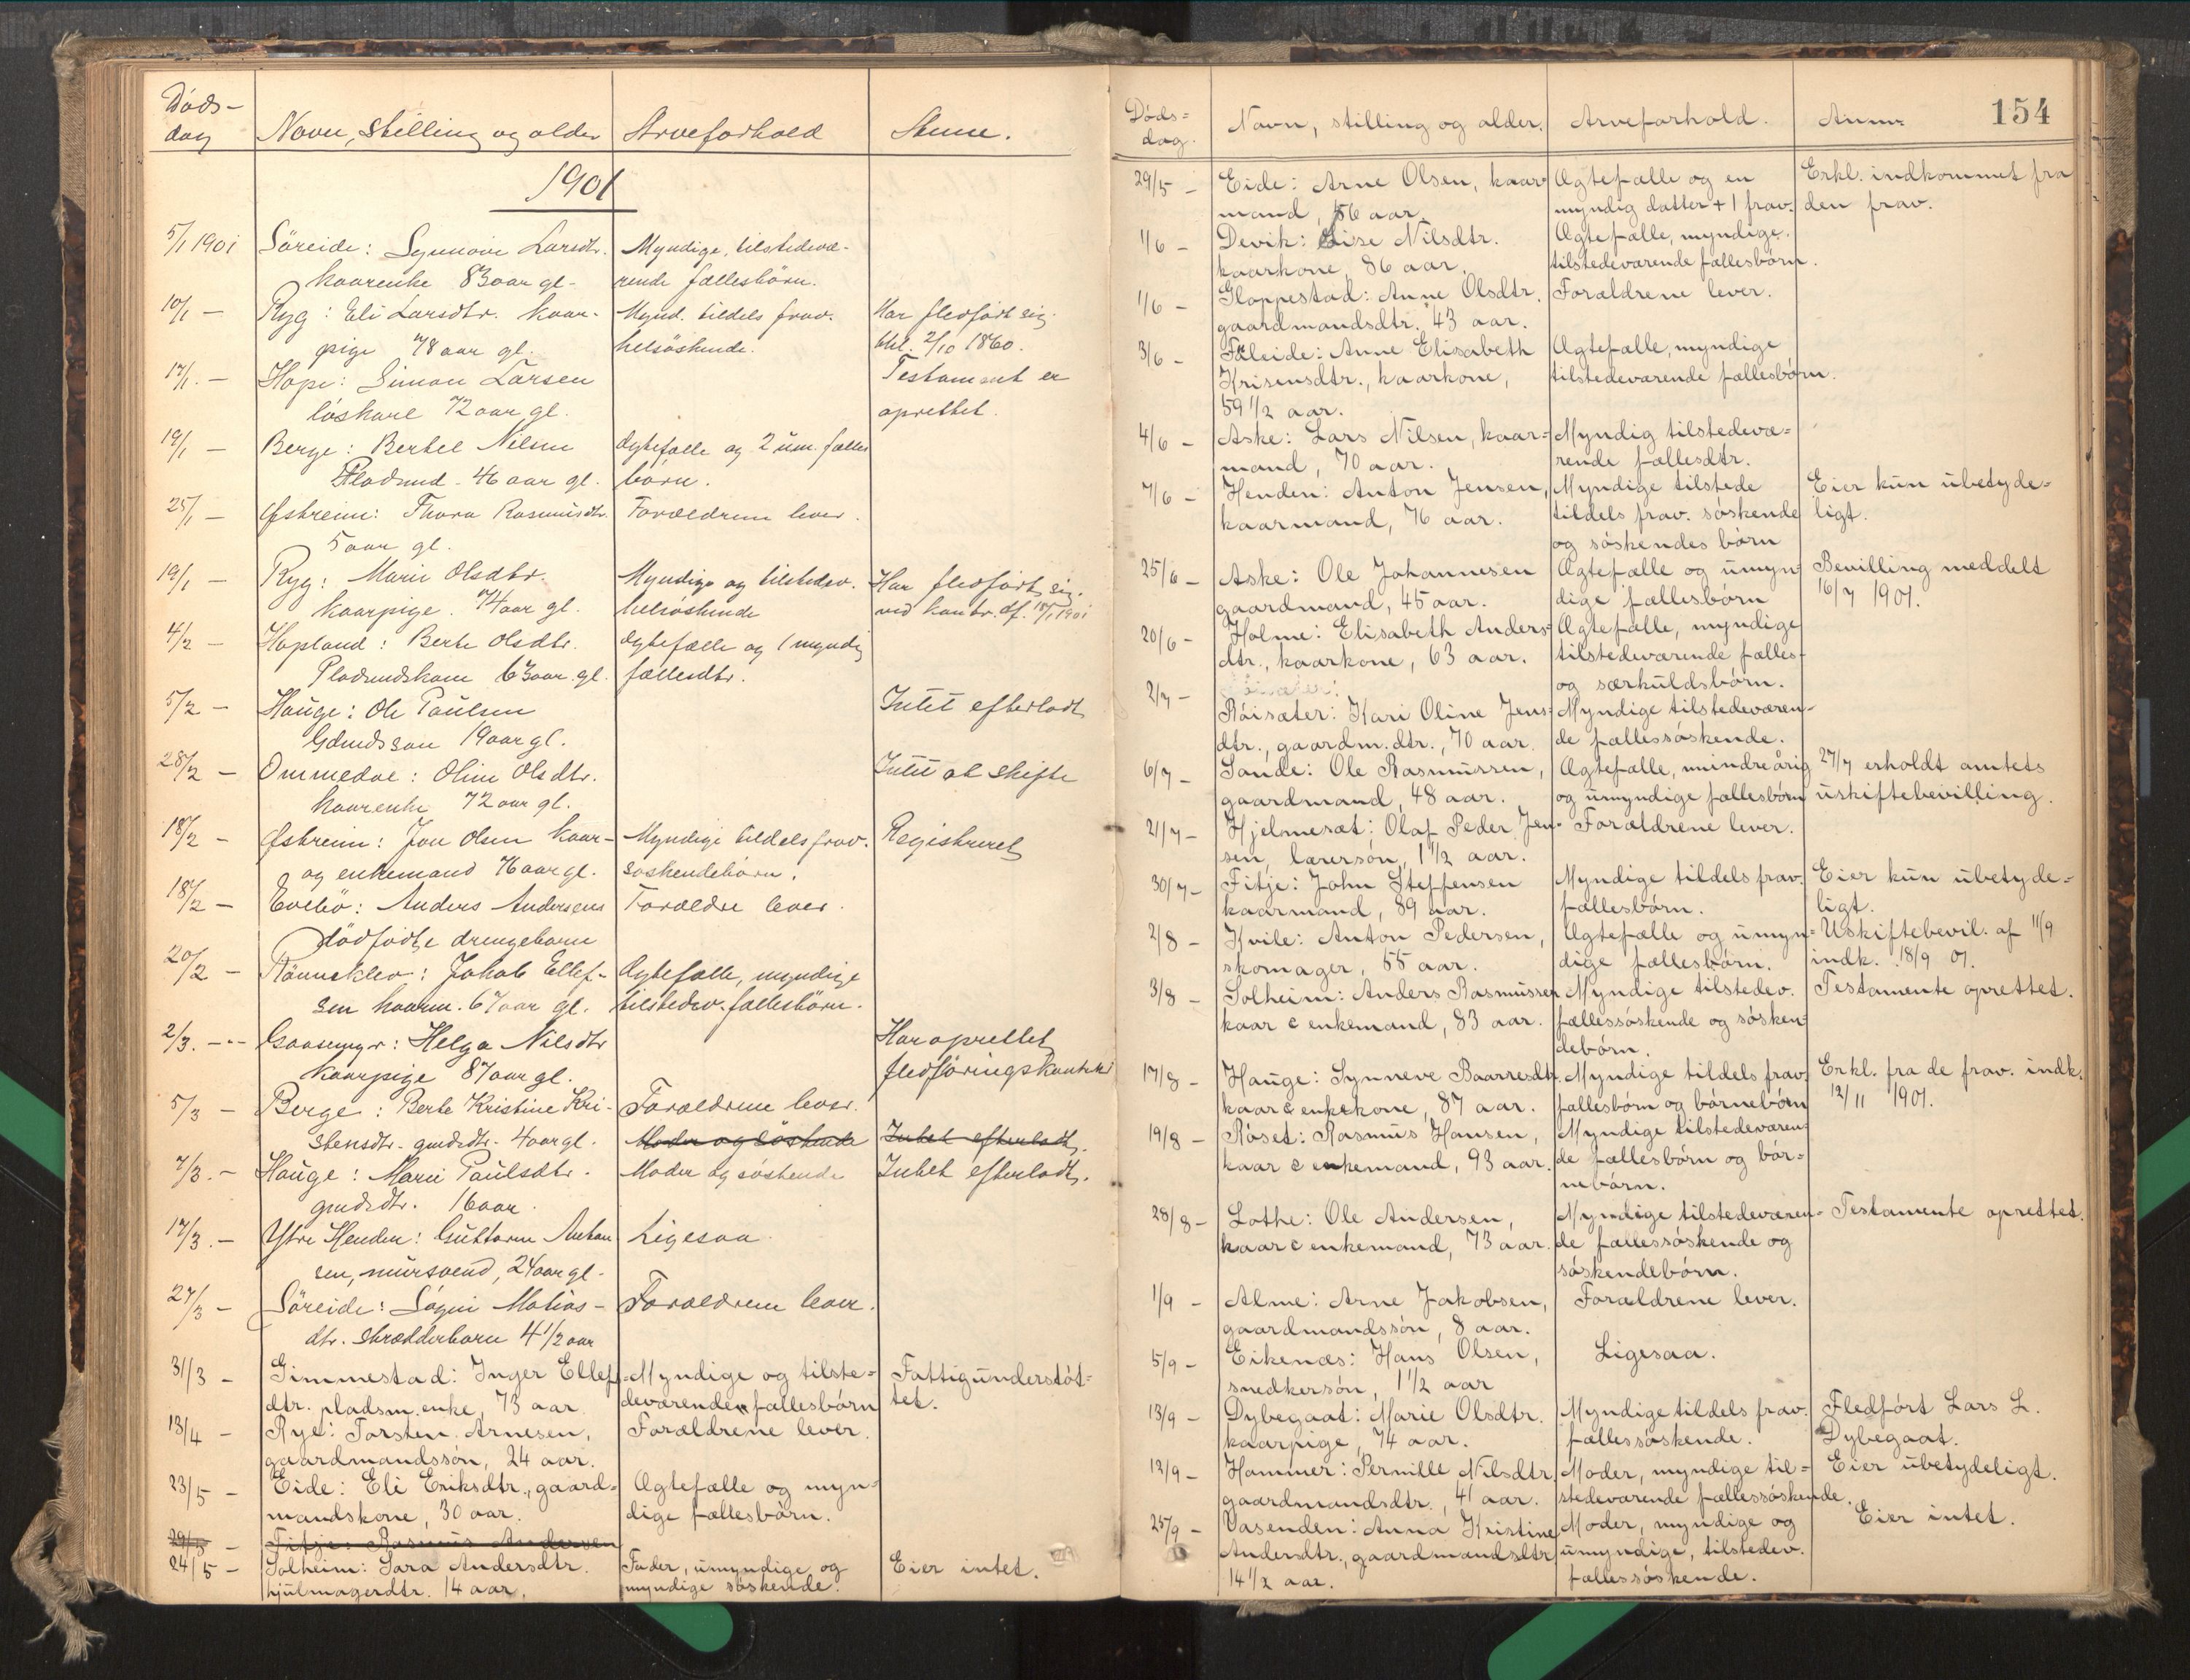 Døds-
dag Navn, stilling og alder Arveforhold Anm.
1901
5/1 1901 Søreide: Synnøve Larsdtr. Myndige, tilstedevæ-
kaarenke 83 aar gl. rende fællesbørn.
10/1 — Ryg: Eli Larsdtr. kaar- Mynd. tildels frav. Har fledført sig
pige 78 aar gl. helsøskende. 2/10 1860.
17/1. — Hope: Simon Larsen Testament er
løskarl 72 aar gl. oprettet.
19/1 — Berge: Bertel Nilsen Ægtefælle og 2 um. fælles
Pladsmd. 46 aar gl. børn.
25/1 — Østreim: Thora Rasmusdtr. Forældrene lever.
5 aar gl.
19/1 — Ryg: Marie Olsdtr. Myndige og tilstedev. Har fledført sig.
kaarpige. 74 aar gl. helsøskende ved kontr. af 18/1 1901
4/2 — Hopland: Berte Olsdtr. Ægtefælle og 1 myndig
Pladsmdskone 63 aar gl. fællesdtr.
5/2 — Hauge: Ole Paulsen Intet efterladt
Gdmdssøn 19 aar gl.
28/2 — Ommedal: Oline Olsdtr. Intet at skifte
kaarenke 72 aar gl.
18/2 — Østreim: Jon Olsen kaar- Myndige tildels frav. Registreret
og enkemand 76 aar gl. søskendebørn.
18/2 — Evebø: Anders Andersens Forældre lever.
dødfødte drengebarn
20/2 — Rønneklev: Jakob Ellef- Ægtefælle, myndige
sen kaarm. 67 aar gl. tilstedev. fællesbørn.
2/3. — Gaasemyr: Helga Nilsdtr Har oprettet
kaarpige 87 aar gl. fledføringskontrkt
5/3 — Berge: Berte Kristine Kri- Forældrene lever.
stensdtr. gmdsdtr. 4 aar gl. Moder og søskende Intet efterladt.
7/3. — Hauge: Marie Paulsdtr. Moder og søskende Intet efterladt.
gmdsdtr. 16 aar.
17/3. — Ytre Henden: Guttorm Anton Ligesaa
sen, mursvend, 24 aar gl.
27/3 — Søreide: Søgni Matias- Forældrene lever.
dtr. skrædderbarn 4 1/2 aar
31/3 — Gimmestad: Inger Ellef- Myndige og tilste- Fattigunderstøt-
dtr. pladsm. enke, 73 aar deværende fællesbørn tet.
13/4 — Rye: Torsten Arnesen, Forældrene lever.
gaardmandssøn, 24 aar.
23/5 — Eide: Eli Eriksdtr., gaard- Ægtefælle og myn-
mandskone, 30 aar. dige fællesbørn.
29/5 — Fitje: Rasmus Andersen
24/5 — Solheim: Sara Andersdtr. Fader, umyndige og Eier intet.
hjulmagerdtr. 14 aar. myndige søskende.
154
Døds=
dag. Navn, stilling og alder. Arveforhold. Anm.
29/5 — Eide: Arne Olsen, kaar- Ægtefælle og en Erkl. indkommet fra
mand, 56 aar. myndig datter + 1 frav. den frav.
1/6 — Devik: Lise Nilsdtr. Ægtefælle, myndige.
kaarkone, 86 aar. tilstedeværende fællesbørn.
1/6 — Gloppestad: Anne Olsdtr. Forældrene lever.
gaardmandsdtr. 43 aar.
3/6 — Faleide: Anne Elisabeth Ægtefælle, myndige
Krisensdtr., kaarkone, tilstedeværende fællesbørn.
59 1/2 aar.
4/6 — Aske: Lars Nilsen, kaar= Myndig tilstedevæ=
mand, 70 aar. rende fællesdtr.
7/6 — Henden: Anton Jensen, Myndige tilstede Eier kun ubetyde=
kaarmand, 76 aar. tildels frav. søskende ligt.
og søskendes børn
25/6 — Aske: Ole Johannesen Ægtefælle og umyn= Bevilling meddelt
gaardmand, 45 aar. dige fællesbørn 16/7 1901.
20/6 — Holme: Elisabeth Anders= Ægtefælle, myndige
dtr., kaarkone, 63 aar. tilstedeværende fælles-
og særkuldsbørn.
2/7 — Röisæter: Kari Oline Jens= Myndige tilstedeværen-
dtr., gaardm. dtr., 70 aar. de fællessøskende.
6/7 — Sande: Ole Rasmussen, Ægtefælle, mindreårig 27/7 erholdt amtets
gaardmand, 48 aar. og umyndige fællesbørn uskiftebevilling.
21/7 — Hjelmeset: Olaf Peder Jen- Forældrene lever.
sen, lærersøn, 1 1/2 aar.
30/7 — Fitje: John Steffensen Myndige tildels frav. Eier kun ubetyde=
kaarmand, 89 aar. fællesbørn. ligt.
2/8 — Kvile: Anton Pedersen, Ægtefælle og umyn= Uskiftebevil. af 11/9
skomager, 55 aar. dige fællesbørn. indk. 18/9 01.
3/8 — Solheim: Anders Rasmussen Myndige tilstedev. Testamente oprettet.
kaar & enkemand, 83 aar. fællessøskende og søsken=
debørn.
17/8 — Hauge: Synneve Baarresdtr. Myndige tildels frav. Erkl. fra de frav. indk.
kaar & enkekone, 87 aar. fællesbørn og børnebørn 12/11 1901.
19/8 — Røset: Rasmus Hansen, Myndige tilstedeværen=
kaar & enkemand, 93 aar. de fællesbørn og bør=
nebørn.
28/8 — Lothe: Ole Andersen, Myndige tilstedeværen= Testamente oprettet.
kaar & enkemand, 73 aar. de fællessøskende og
søskendebørn.
1/9 — Alme: Arne Jakobsen, Forældrene lever.
gaardmandssøn, 8 aar.
5/9 — Eikenæs: Hans Olsen, Ligesaa.
snedkersøn, 1 1/2 aar
13/9 — Dybegaat: Marie Olsdtr. Myndige tildels frav. Fledført Lars L.
kaarpige, 74 aar. fællessøskende. Dybegaat.
12/9 — Hammer: Pernille Nilsdtr Moder, myndige til= Eier ubetydeligt.
gaardmandsdtr., 41 aar. stedeværende fællessøskende.
25/9 — Vasenden: Anna Kristine Moder, myndige og Eier intet.
Andersdtr., gaardmandsdtr umyndige, tilstedev.
14 1/2 aar. fællessøskende.